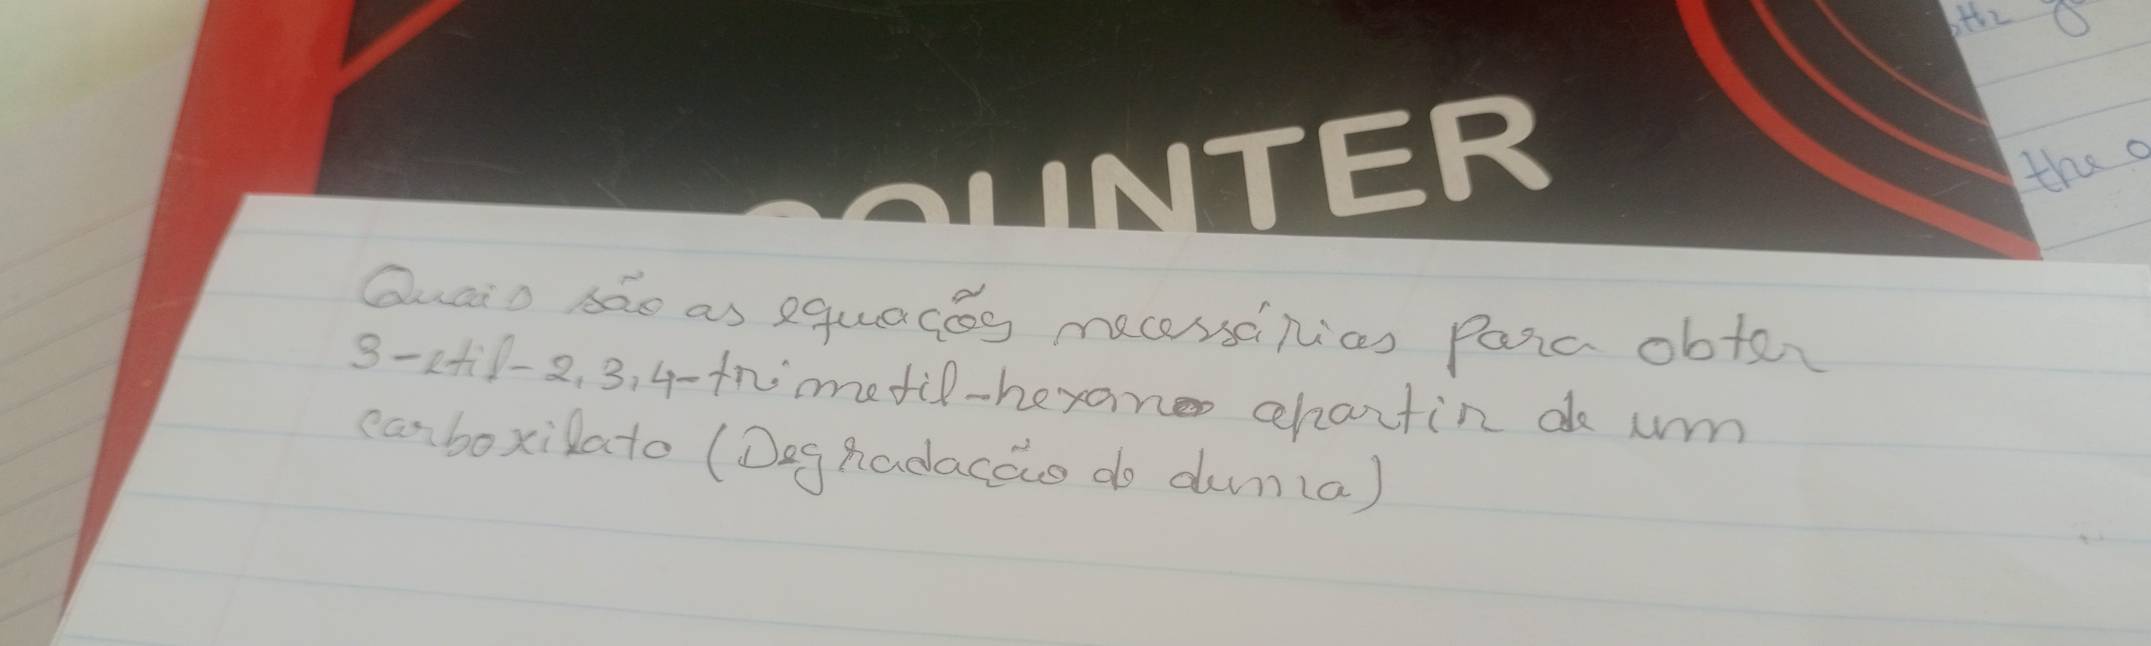 COUNTER
the
Quais são as equações necessárias para obter
3-etil-2,3,4-trimetil-hexano apartir de um
carboxilato (Degradação do duma)